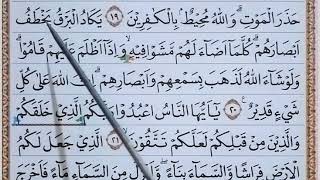 حَذَرَ الْمَوْتِ ۗ وَاللّٰهُ مُحِيْطٌۢ بِالْكٰفِرِيْنَ ١٩ يَكَادُ الْبَرْقُ يَخْطَفُ
اَبْصَارَهُمْ ۗ كُلَّمَآ اَضَاۤءَ لَهُمْ مَّشَوْا فِيْهِ ۙ وَاِذَآ اَظْلَمَ عَلَيْهِمْ قَامُوْا ۗ
وَلَوْ شَاۤءَ اللّٰهُ لَذَهَبَ بِسَمْعِهِمْ وَاَبْصَارِهِمْ ۗ اِنَّ اللّٰهَ عَلٰى كُلِّ
شَيْءٍ قَدِيْرٌ ٢٠ يٰٓاَيُّهَا النَّاسُ اعْبُدُوْا رَبَّكُمُ الَّذِيْ خَلَقَكُمْ
وَالَّذِيْنَ مِنْ قَبْلِكُمْ لَعَلَّكُمْ تَتَّقُوْنَ ٢١ الَّذِيْ جَعَلَ لَكُمُ
الْاَرْضَ فِرَاشًا وَّالسَّمَاۤءَ بِنَاۤءً ۖ وَّاَنْزَلَ مِنَ السَّمَاۤءِ مَاۤءً فَاَخْرَجَ